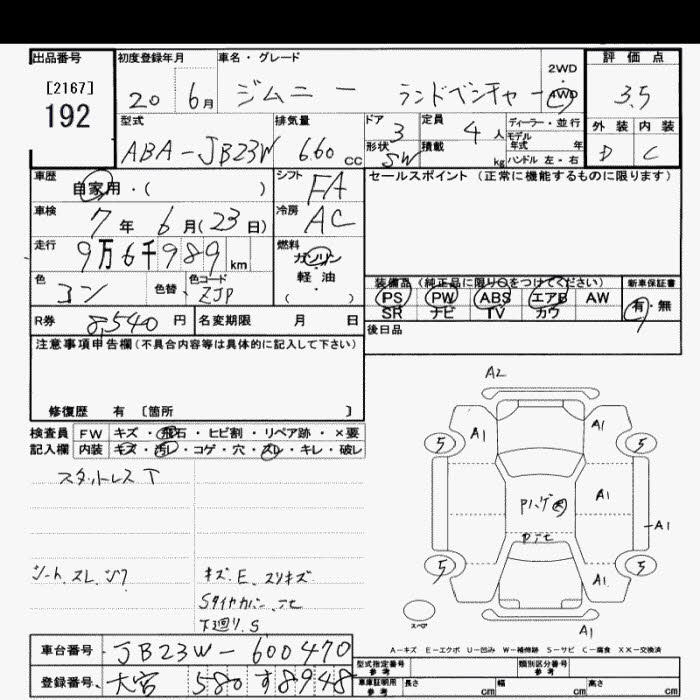 出品番号
[2167]
192
初度登録年月
20 6月
車名・グレード
ジムニー ランドベンチャー
2WD
・
4WD
評価点
3.5
外装 内装
D C
型式
ABA-JB23W
排気量
6.60 cc
ドア
3
形状
SW
定員
4人
積載
kg
ディーラー・並行
モデル
年式 年
ハンドル 左・右
車歴
自家用・( )
シフト
FA
セールスポイント (正常に機能するものに限ります)
車検
7年 6月(23日)
冷房
AC
走行
9万6千989km
燃料
ガソリン
・
軽・油
( )
色
コン
色替
色コード
ZJP
装備品 (純正品に限り○をつけてください)
PS PW ABS エアB AW
SR ナビ TV カワ
新車保証書
有・無
R券
8,540円
名変期限 月 日
後日品
注意事項申告欄 (不具合内容等は具体的に記入して下さい)
修復歴 有 [箇所 ]
検査員 FW キズ・飛石・ヒビ割・リペア跡・×要
記入欄 内装 キズ・汚レ・コゲ・穴・スレ・キレ・破レ
スタットレス T
シート、スレ、シワ
キズ、E、スリキズ
Sタイヤカバー、テヒ
下廻り、S
A2
A1
A1
5
5
A1
A1
5
5
A1
A1
スペア
A-キズ E-エクボ U-凹み W-補修跡 S-サビ C-腐食 XX-交換済
車台番号
JB23W-600470
登録番号
大宮 580 す 8948
型式指定番号
参考
類別区分番号
参考
車庫証明用
参考
長さ cm
幅 cm
高さ cm